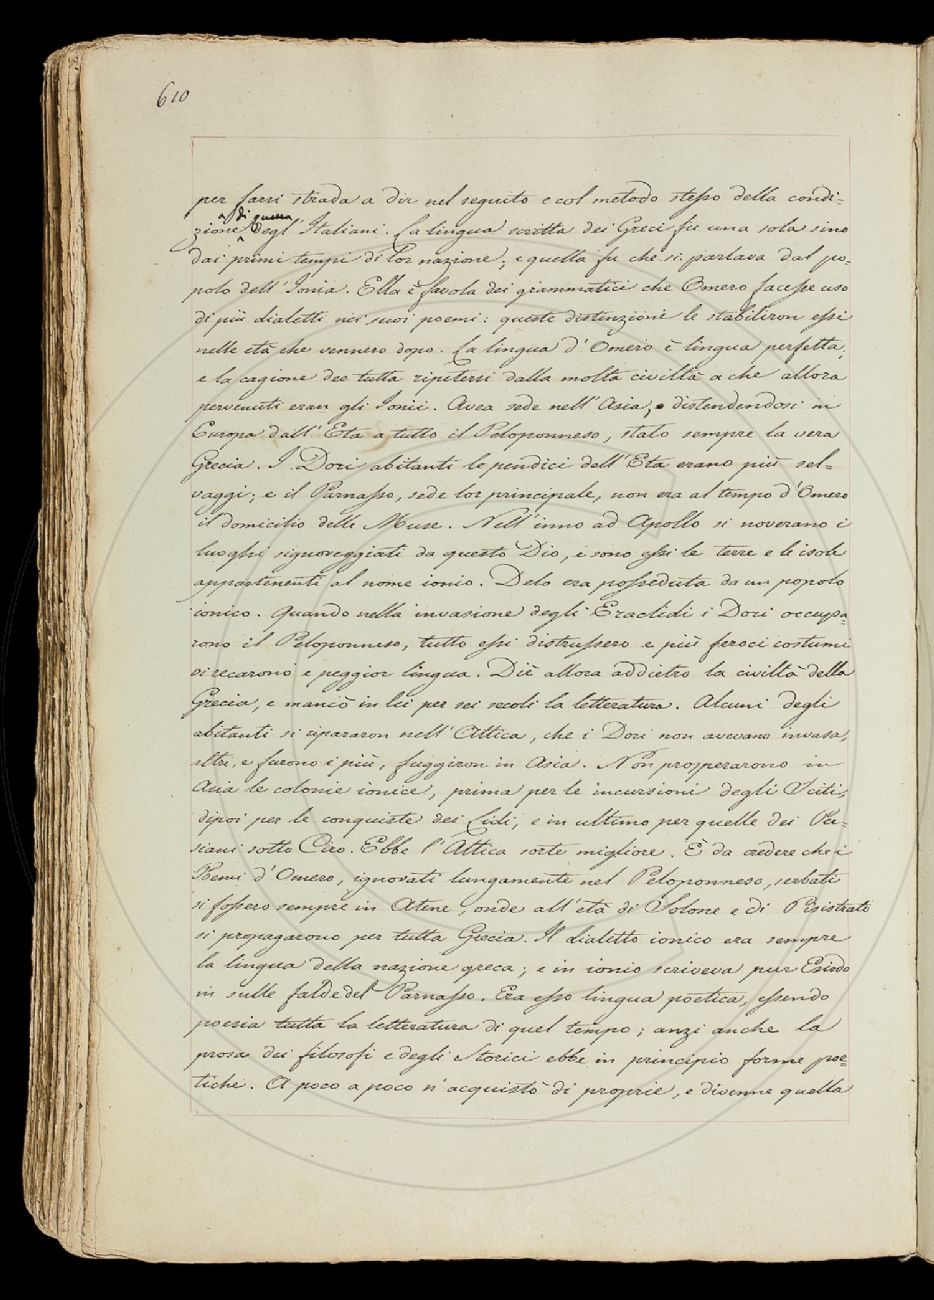 610
per farsi strada a dir nel seguito e col metodo stesso della condi=
di quella
zione degl' Italiani. La lingua scritta dei Greci fu una sola sino
dai primi tempi di lor nazione; e quella fu che si parlava dal po=
polo dell' Ionia. Ella è favola dei grammatici che Omero facesse uso
di più dialetti nei suoi poemi: queste distinzioni le stabiliron essi
nelle età che vennero dopo. La lingua d' Omero è lingua perfetta;
e la cagione dee tutta ripetersi dalla molta civiltà a che allora
pervenuti eran gli Ionii. Avea sede nell' Asia, distendendosi in
Europa dall' Eta a tutto il Peloponneso, stato sempre la vera
Grecia. I Dori abitanti le pendici dell' Eta erano più sel=
vaggi; e il Parnasso, sede lor principale, non era al tempo d' Omero
il domicilio delle Muse. Nell' inno ad Apollo si noverano i
luoghi signoreggiati da questo Dio, e sono essi le terre e le isole
appartenenti al nome ionio. Delo era posseduta da un popolo
ionico. Quando nella invasione degli Eraclidi i Dori occupa=
rono il Peloponneso, tutto essi distrussero e più feroci costumi
vi recarono e peggior lingua. Diè allora addietro la civiltà della
Grecia, e mancò in lei per sei secoli la letteratura. Alcuni degli
abitanti si ripararon nell' Attica, che i Dori non avevano invasa,
altri, e furono i più, fuggiron in Asia. Non prosperarono in
Asia le colonie ionice, prima per le incursioni degli Sciti,
dipoi per le conquiste dei Lidi, e in ultimo per quelle dei Per=
siani sotto Ciro. Ebbe l' Attica sorte migliore. È da credere che i
Poemi d' Omero, ignorati lungamente nel Peloponneso, serbati
si fossero sempre in Atene, onde all' età di Solone e di Pisistrato
si propagarono per tutta Grecia. Il dialetto ionico era sempre
la lingua della nazione greca; e in ionio scriveva pur Esiodo
in sulle falde del Parnasso. Era esso lingua poetica, essendo
poesia tutta la letteratura di quel tempo; anzi anche la
prosa dei filosofi e degli Storici ebbe in principio forme poe=
tiche. A poco a poco n' acquistò di proprie, e divenne quella